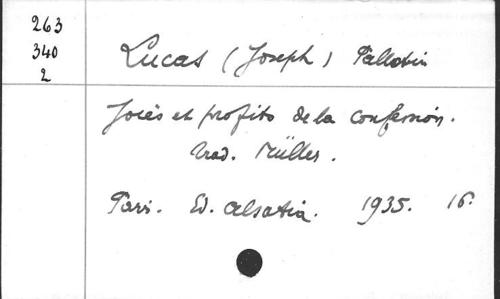 263
340
2
Lucas (Joseph) Pallotin
Joies et profits de la confession.
Trad. Müller.
Paris. Ed. Alsatia. 1935. 16.